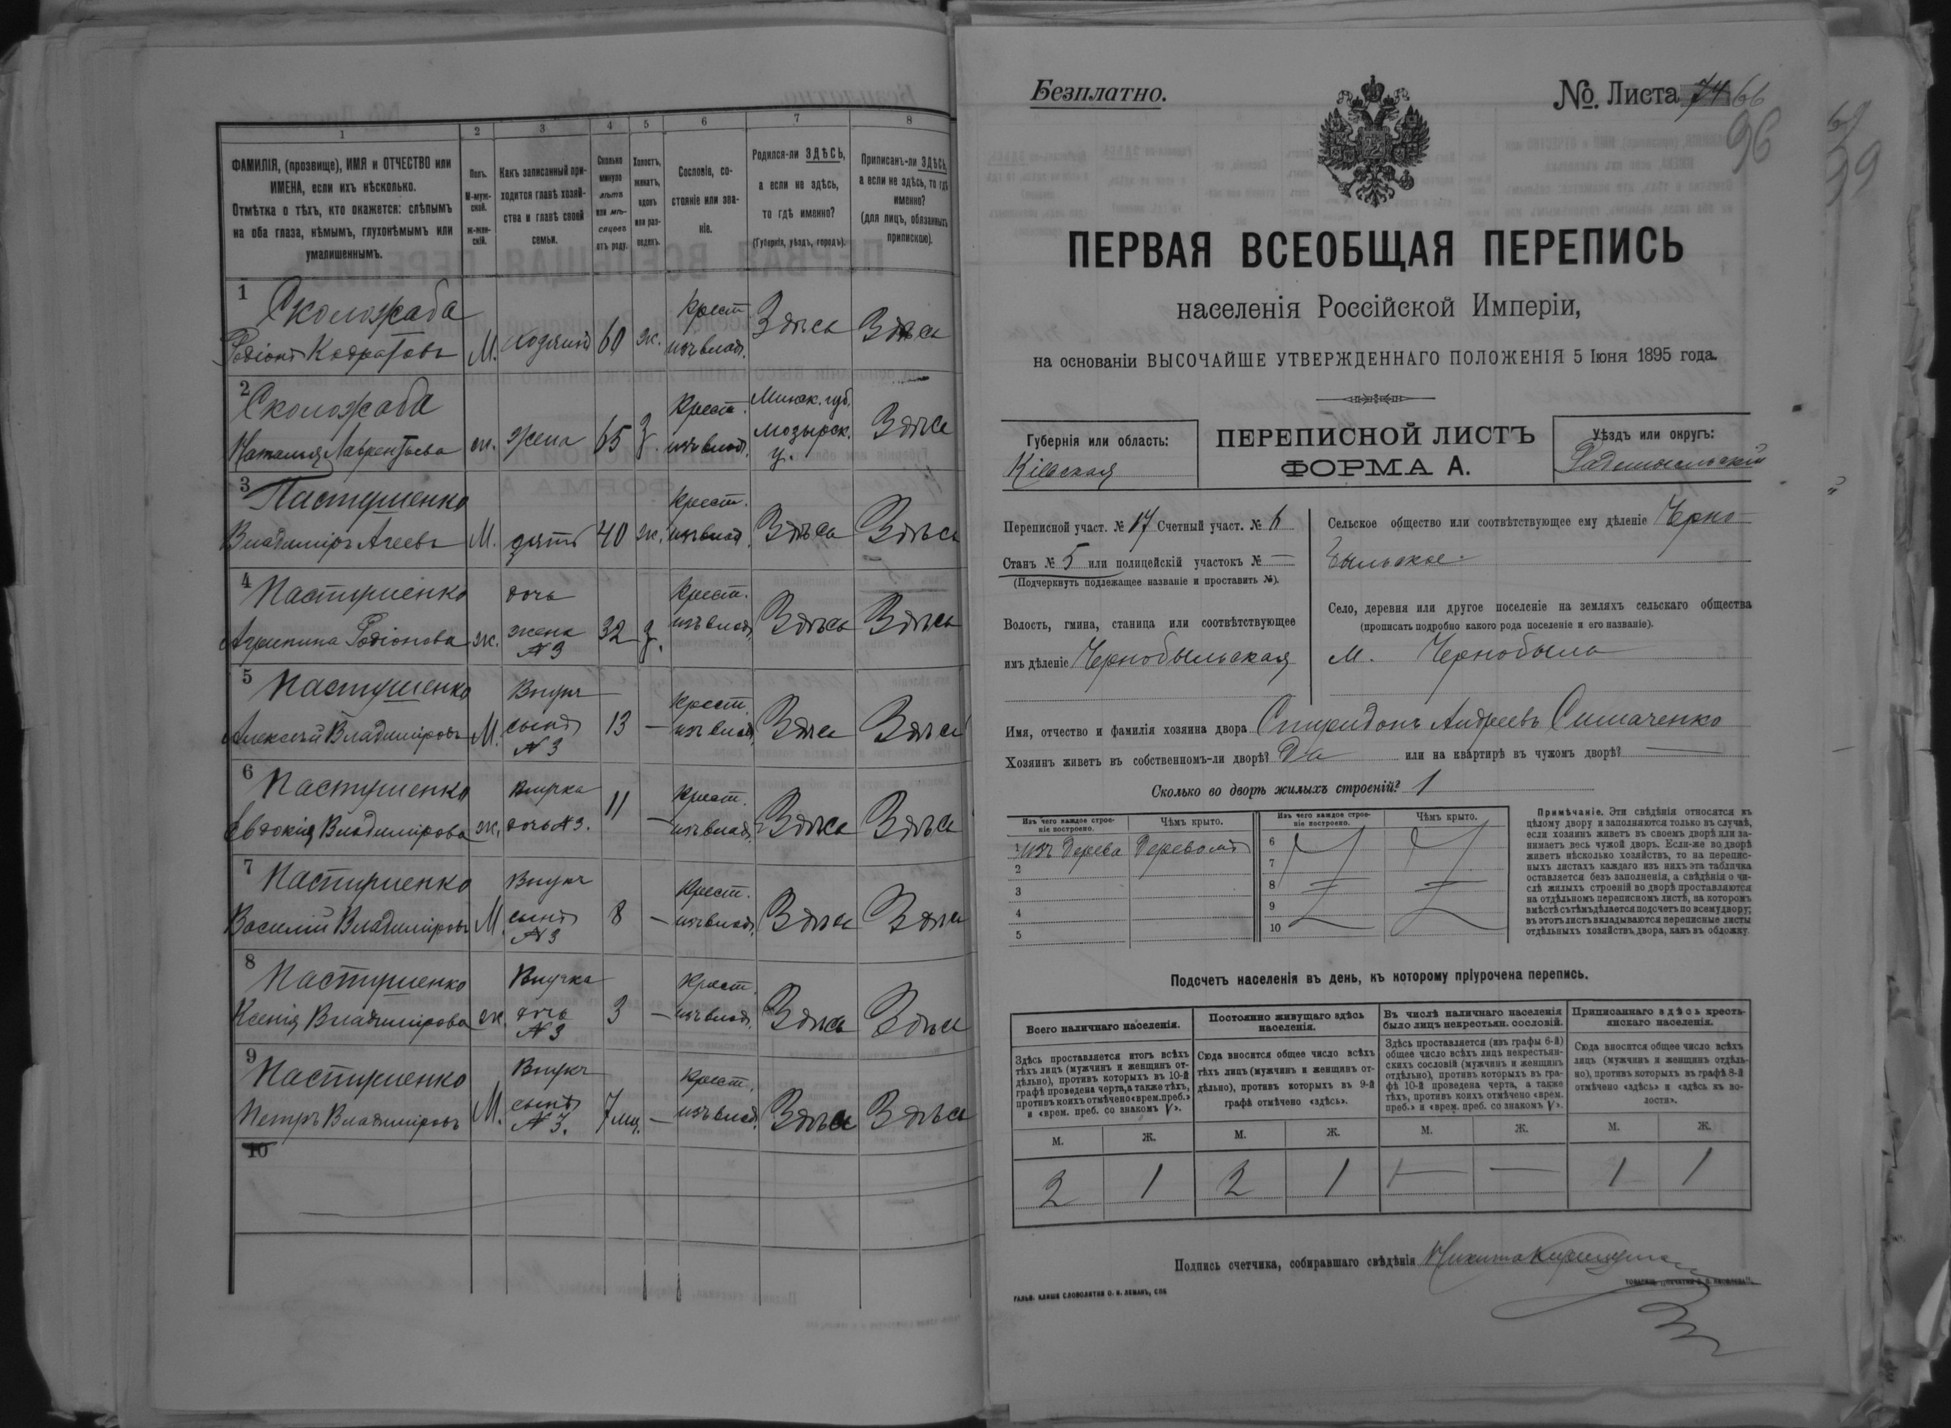 1
2
3
4
5
6
7
8
ФАМИЛІЯ, (прозвище), ИМЯ и ОТЧЕСТВО или
ИМЕНА, если ихъ нѣсколько.
Отмѣтка о тѣхъ, кто окажется: слѣпымъ
на оба глаза, нѣмымъ, глухонѣмымъ или
умалишеннымъ.
Полъ.
М-муж-
ской.
ж-жен-
скій.
Какъ записанный при-
ходится главѣ хозяй-
ства и главѣ своей
семьи.
Сколько
минуло
лѣтъ
или мѣ-
сяцевъ
отъ роду.
Холостъ,
женатъ,
вдовъ
или раз-
веденъ.
Сословіе, со-
стояніе или зва-
ніе.
Родился-ли ЗДѢСЬ,
а если не здѣсь,
то гдѣ именно?
(Губернія, уѣздъ, городъ).
Приписанъ-ли ЗДѢСЬ,
а если не здѣсь, то гдѣ
именно?
(для лицъ, обязанныхъ
припискою).
1
Сколожаба
Родіонъ Кодратовъ
М.
хозяинъ
60
ж.
Крест
изъ влад.
Здѣсь
Здѣсь
2
Сколожаба
Наталия Лаврентьева
ж.
жена
65
з.
Крест.
изъ влад.
Минск. губ.
Мозырск.
у.
Здѣсь
3
Пастушенко
Владиміръ Агеевъ
М.
зять
40
ж.
Крест.
изъ влад.
Здѣсь
Здѣсь
4
Пастушенко
Агрипина Родіонова
ж.
дочь
жена
№3
32
з.
Крест.
изъ влад.
Здѣсь
Здѣсь
5
Пастушенко
Алексѣй Владиміровъ
М.
Внукъ
сынъ
№3
13
—
Крест.
изъ влад.
Здѣсь
Здѣсь
6
Пастушенко
Евдокія Владимірова
ж.
Внучка
дочь №3.
11
—
Крест.
изъ влад.
Здѣсь
Здѣсь
7
Пастушенко
Василій Владиміровъ
М.
Внукъ
сынъ
№3
8
—
Крест.
изъ влад.
Здѣсь
Здѣсь
8
Пастушенко
Ксенія Владимірова
ж.
Внучка
дочь
№3
3
—
Крест.
изъ влад.
Здѣсь
Здѣсь
9
Пастушенко
Петръ Владиміровъ
М.
Внукъ
сынъ
№3.
7 мц.
—
Крест.
изъ влад.
Здѣсь
Здѣсь
10
Безплатно.
№. Листа 74 66
96
99
ПЕРВАЯ ВСЕОБЩАЯ ПЕРЕПИСЬ
населенія Россійской Имперіи,
на основаніи ВЫСОЧАЙШЕ УТВЕРЖДЕННАГО ПОЛОЖЕНІЯ 5 Іюня 1895 года.
Губернія или область:
Кіевская
ПЕРЕПИСНОЙ ЛИСТЪ
ФОРМА А.
Уѣздъ или округъ:
Радомысльскій
Переписной участ. № 17 Счетный участ. № 6
Станъ № 5 или полицейскій участокъ № —
(Подчеркнуть подлежащее названіе и проставить №).
Волость, гмина, станица или соотвѣтствующее
имъ дѣленіе Чернобыльская
Сельское общество или соотвѣтствующее ему дѣленіе Черно-
быльское.
Село, деревня или другое поселеніе на земляхъ сельскаго общества
(прописать подробно какого рода поселеніе и его названіе).
м. Чернобыль
Имя, отчество и фамилія хозяина двора Спиридонъ Андреевъ Симаченко
Хозяинъ живетъ въ собственномъ-ли дворѣ? Да или на квартирѣ въ чужомъ дворѣ? —
Сколько во дворѣ жилыхъ строеній? 1
Изъ чего каждое строе-
ніе построено.
Чѣмъ крыто.
Изъ чего каждое строе-
ніе построено.
Чѣмъ крыто.
1 изъ дерева
Деревомъ
2
3
4
5
6
7
8
9
10
Примѣчаніе. Эти свѣдѣнія относятся къ
цѣлому двору и заполняются только въ случаѣ,
если хозяинъ живетъ въ своемъ дворѣ или за-
нимаетъ весь чужой дворъ. Если-же во дворѣ
живетъ нѣсколько хозяйствъ, то на перепис-
ныхъ листахъ каждаго изъ нихъ эта табличка
оставляется безъ заполненія, а свѣдѣнія о чи-
слѣ жилыхъ строеній во дворѣ проставляются
на отдѣльномъ переписномъ листѣ, на которомъ
вмѣстѣ съ тѣмъ дѣлается подсчетъ по всему двору;
въ этотъ листъ вкладываются переписные листы
отдѣльныхъ хозяйствъ двора, какъ въ обложку.
Подсчетъ населенія въ день, къ которому пріурочена перепись.
Всего наличнаго населенія.
Постоянно живущаго здѣсь
населенія.
Въ числѣ наличнаго населенія
было лицъ некрестьян. сословій.
Приписаннаго здѣсь кресть-
янскаго населенія.
Здѣсь проставляется итогъ всѣхъ
тѣхъ лицъ (мужчинъ и женщинъ от-
дѣльно), противъ которыхъ въ 10-й
графѣ проведена черта, а также тѣхъ,
противъ коихъ отмѣчено «врем. преб.»
и «врем. преб. со знакомъ V».
Сюда вносится общее число всѣхъ
тѣхъ лицъ (мужчинъ и женщинъ от-
дѣльно), противъ которыхъ въ 9-й
графѣ отмѣчено «здѣсь».
Здѣсь проставляется (изъ графы 6-й)
общее число всѣхъ лицъ некрестьян-
скихъ сословій (мужчинъ и женщинъ
отдѣльно), противъ которыхъ въ гра-
фѣ 10-й проведена черта, а также
тѣхъ, противъ коихъ отмѣчено «врем.
преб.» и «врем. преб. со знакомъ V».
Сюда вносится общее число всѣхъ
лицъ (мужчинъ и женщинъ отдѣль-
но), противъ которыхъ въ графѣ 8-й
отмѣчено «здѣсь» и «здѣсь въ во-
лости».
М.
Ж.
М.
Ж.
М.
Ж.
М.
Ж.
2
1
2
1
—
—
1
1
Подпись счетчика, собиравшаго свѣдѣнія Никита
ГАЛЬВ. КЛИШЕ СЛОВОЛИТНИ О. И. ЛЕМАНЪ, СПБ